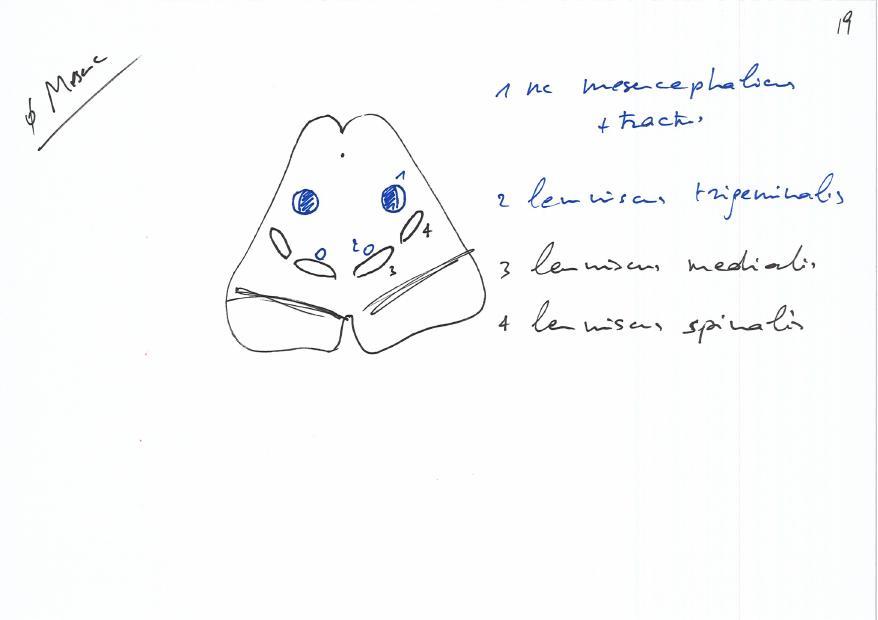 19
ϕ Mesenc
1 nc mesencephalicus
+ tractus
2 lemniscus trigeminalis
3 lemniscus medialis
4 lemniscus spinalis
1
2
3
4